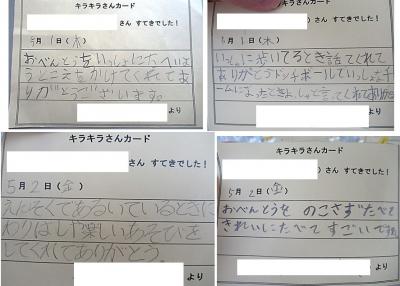 キラキラさんカード
さん すてきでした！
5月1日(木)
おべんとうをいっしょにたべよ
うとこえをかけてくれてあ
りがとうございます。
より
キラキラさんカード
さん すてきでした！
月1日(木)
いっしょに歩いてるとき話てくれて
ありがとうドッチボールでいっしょのチ
ームになったときよ
より
キラキラさんカード
さん すてきでした！
5月2日(金)
えんそくであるいているときに
わりばしや楽しいあそびを
してくれてありがとう。
より
キラキラさんカード
さん すてきでした！
5月2日(金)
おべんとうを のこさずたべて
きれいにたべて すごいです
より